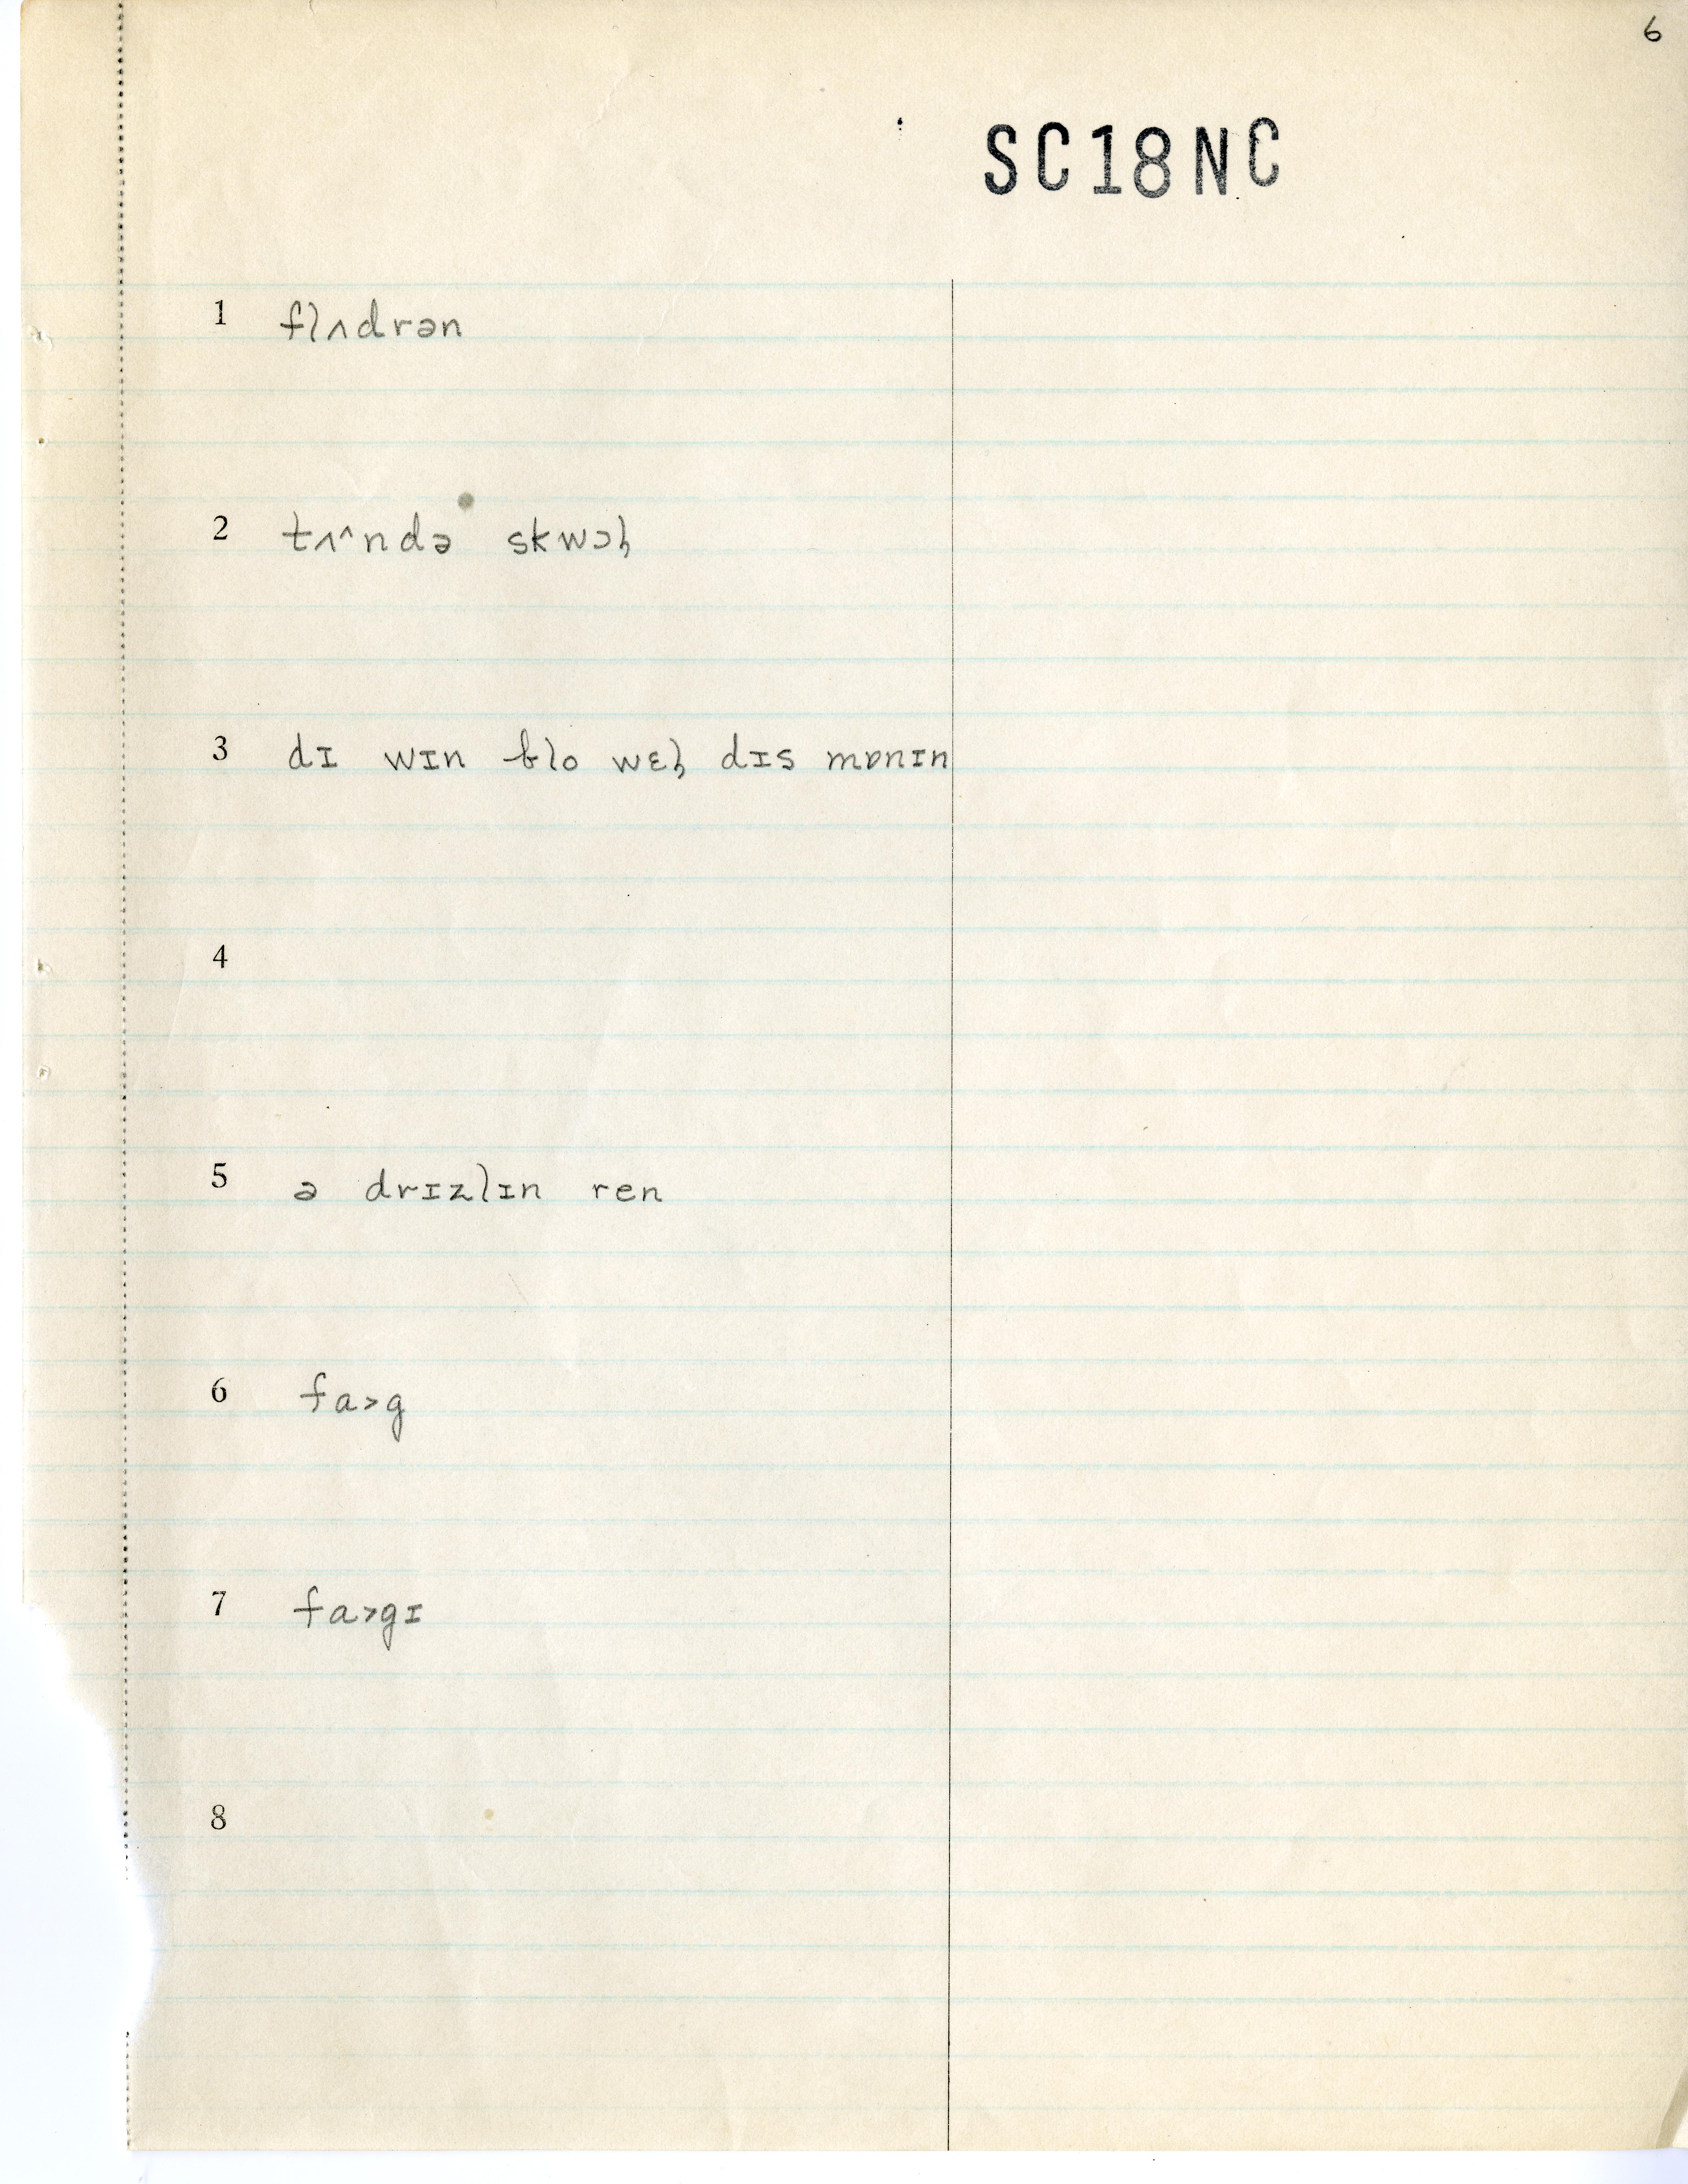 6
SC18NC
1 flʌdrən
2 tʌ^ndə skwɔɫ
3 dɪ wɪn blo wɛɫ dɪs mɒnɪn
4
5 ə drɪzlɪn ren
6 fa>g
7 fa>gɪ
8